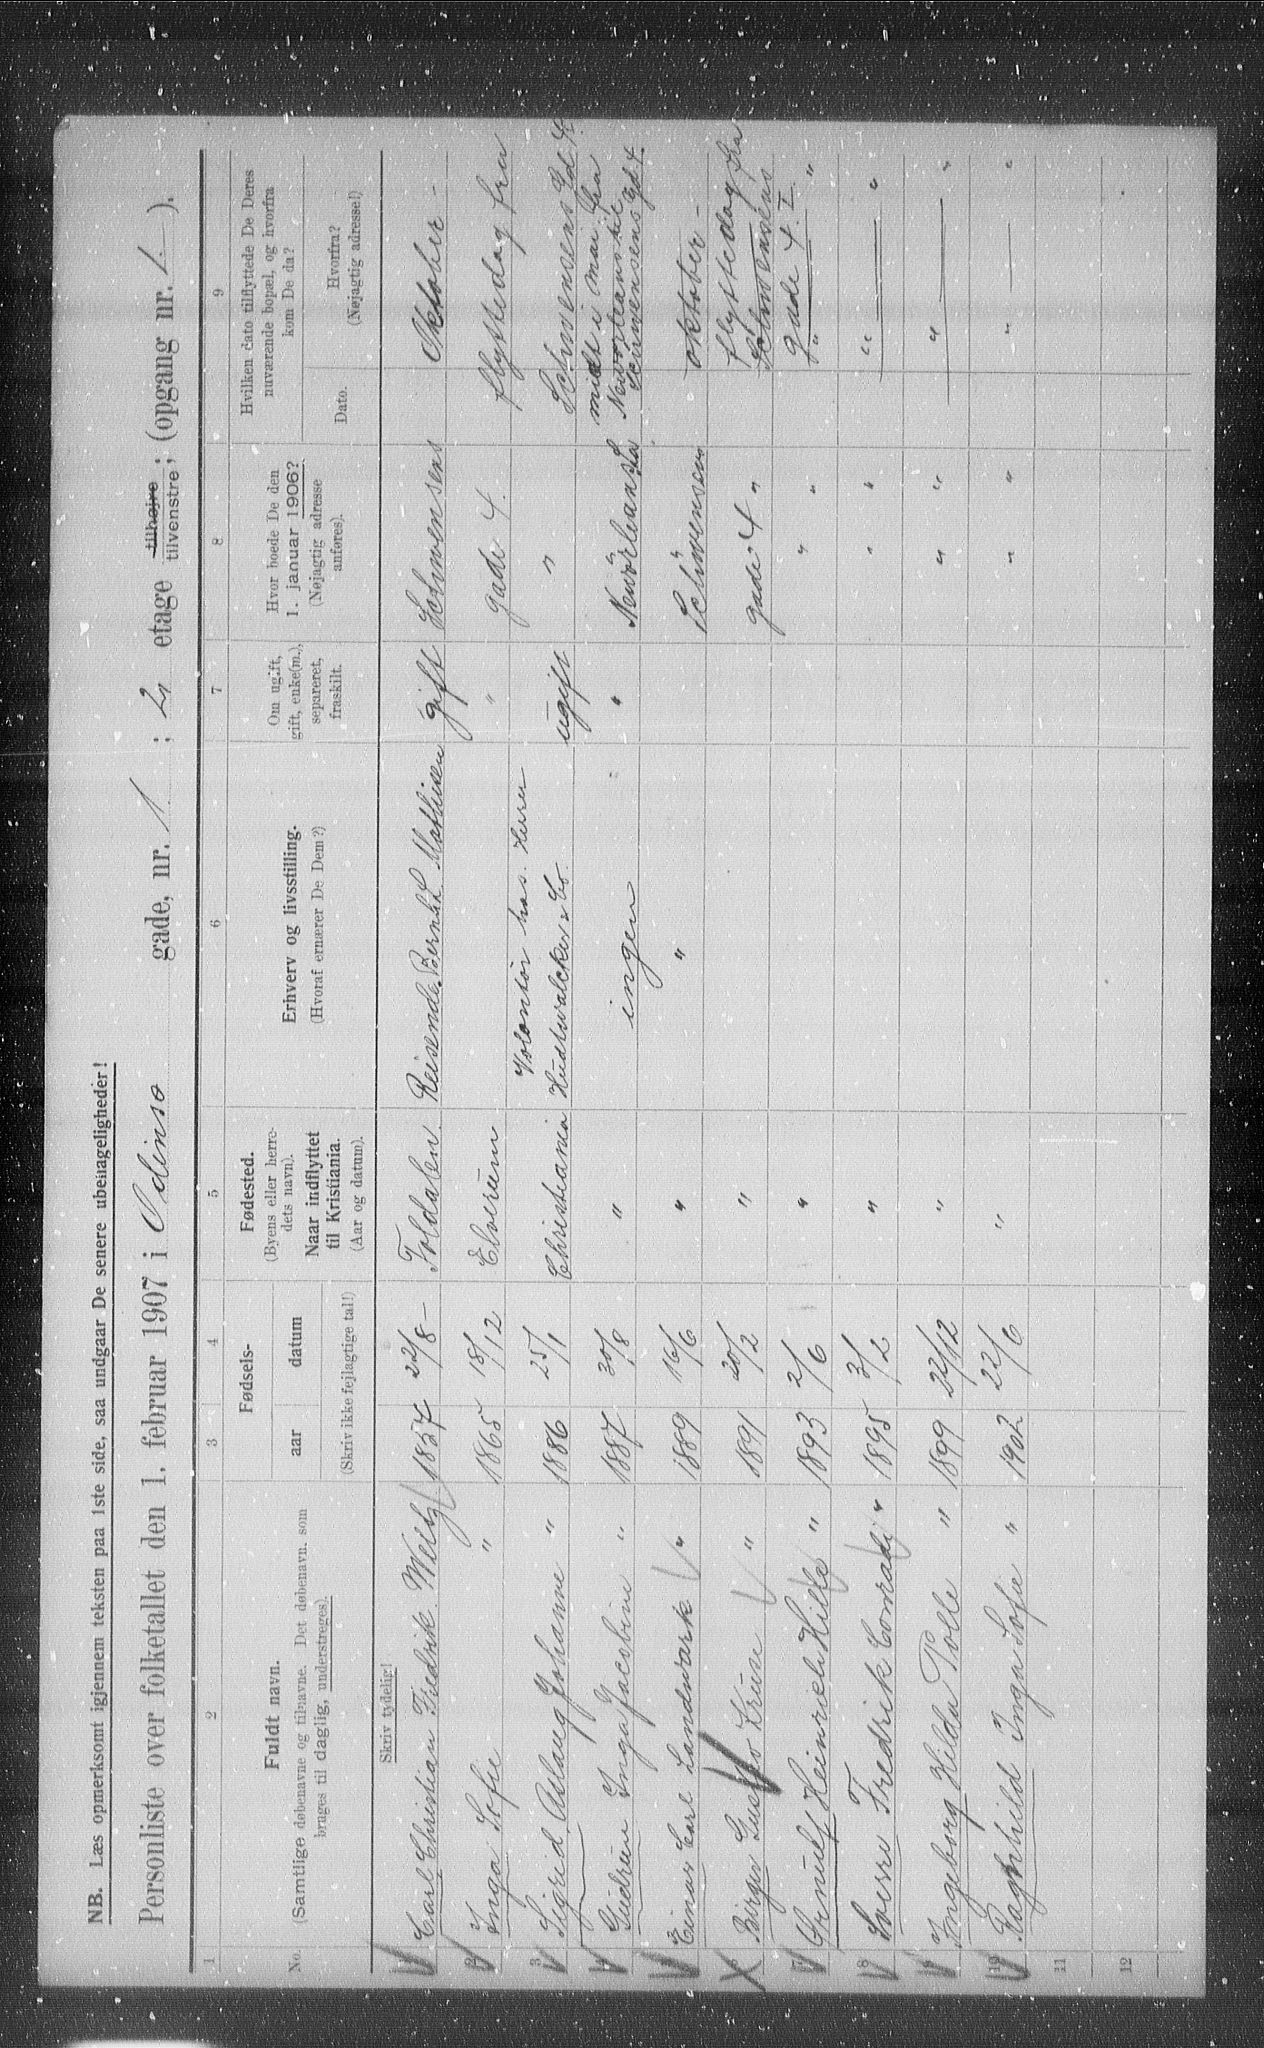 NB. Læs opmerksomt igjennem teksten paa 1ste side, saa undgaar De senere ubehageligheder!
Personliste over folketallet den 1. februar 1907 i Odinso gade, nr. 1 ; 2 etage tilhøjre tilvenstre; (opgang nr. 1. ).
1 2 3 4 5 6 7 8 9
No.
Fuldt navn.
(Samtlige døbenavne og tilnavne. Det døbenavn, som
bruges til daglig, understreges).
Fødsels-
aar datum
(Skriv ikke fejlagtige tal!)
Fødested.
(Byens eller herre-
dets navn).
Naar indflyttet
til Kristiania.
(Aar og datum).
Erhverv og livsstilling.
(Hvoraf ernærer De Dem?)
Om ugift,
gift, enke(m.),
separeret,
fraskilt.
Hvor boede De den
1. januar 1906?
(Nøjagtig adresse
anføres).
Hvilken dato tilflyttede De Deres
nuværende bopæl, og hvorfra
kom De da?
Dato. Hvorfra?
(Nøjagtig adresse!)
Skriv tydelig!
1 Carl Christian Fredrik 1857 22/8 - Foldalen. Reisende. Bernhd. Mathisen gift Schwensens Oktober -
2 Inga Sofie " 1865 18/12 Elverum " gade 4. flyttedag fra
3 Sigrid Aslaug Johanne " 1886 25/1 Christiania Volontør hos. Herrer Hudtwalcker & Co ugift " Schwensens Gd 4
4 Gudrun Inga Jacobine " 1887 20/8 " ingen " midt i mai fra Schwensens Gd 4.
5 Einar Carl Landmark " 1889 16/6 " " Schwensens oktober -
6 Birger Gustav Kruse " 1891 20/2 " gade 4 " flyttedag fra Schwensens
7 Arnulf Heinrich " 1893 2/6 " " " gade 4. I. " "
8 Sverre Fredrik Conradi " 1895 3/2 " " " " "
9 Ingeborg Hilda Tolle " 1899 22/12 " " " " "
10 Ragnhild Inga Sofie " 1902 22/6 " " " " "
11
12